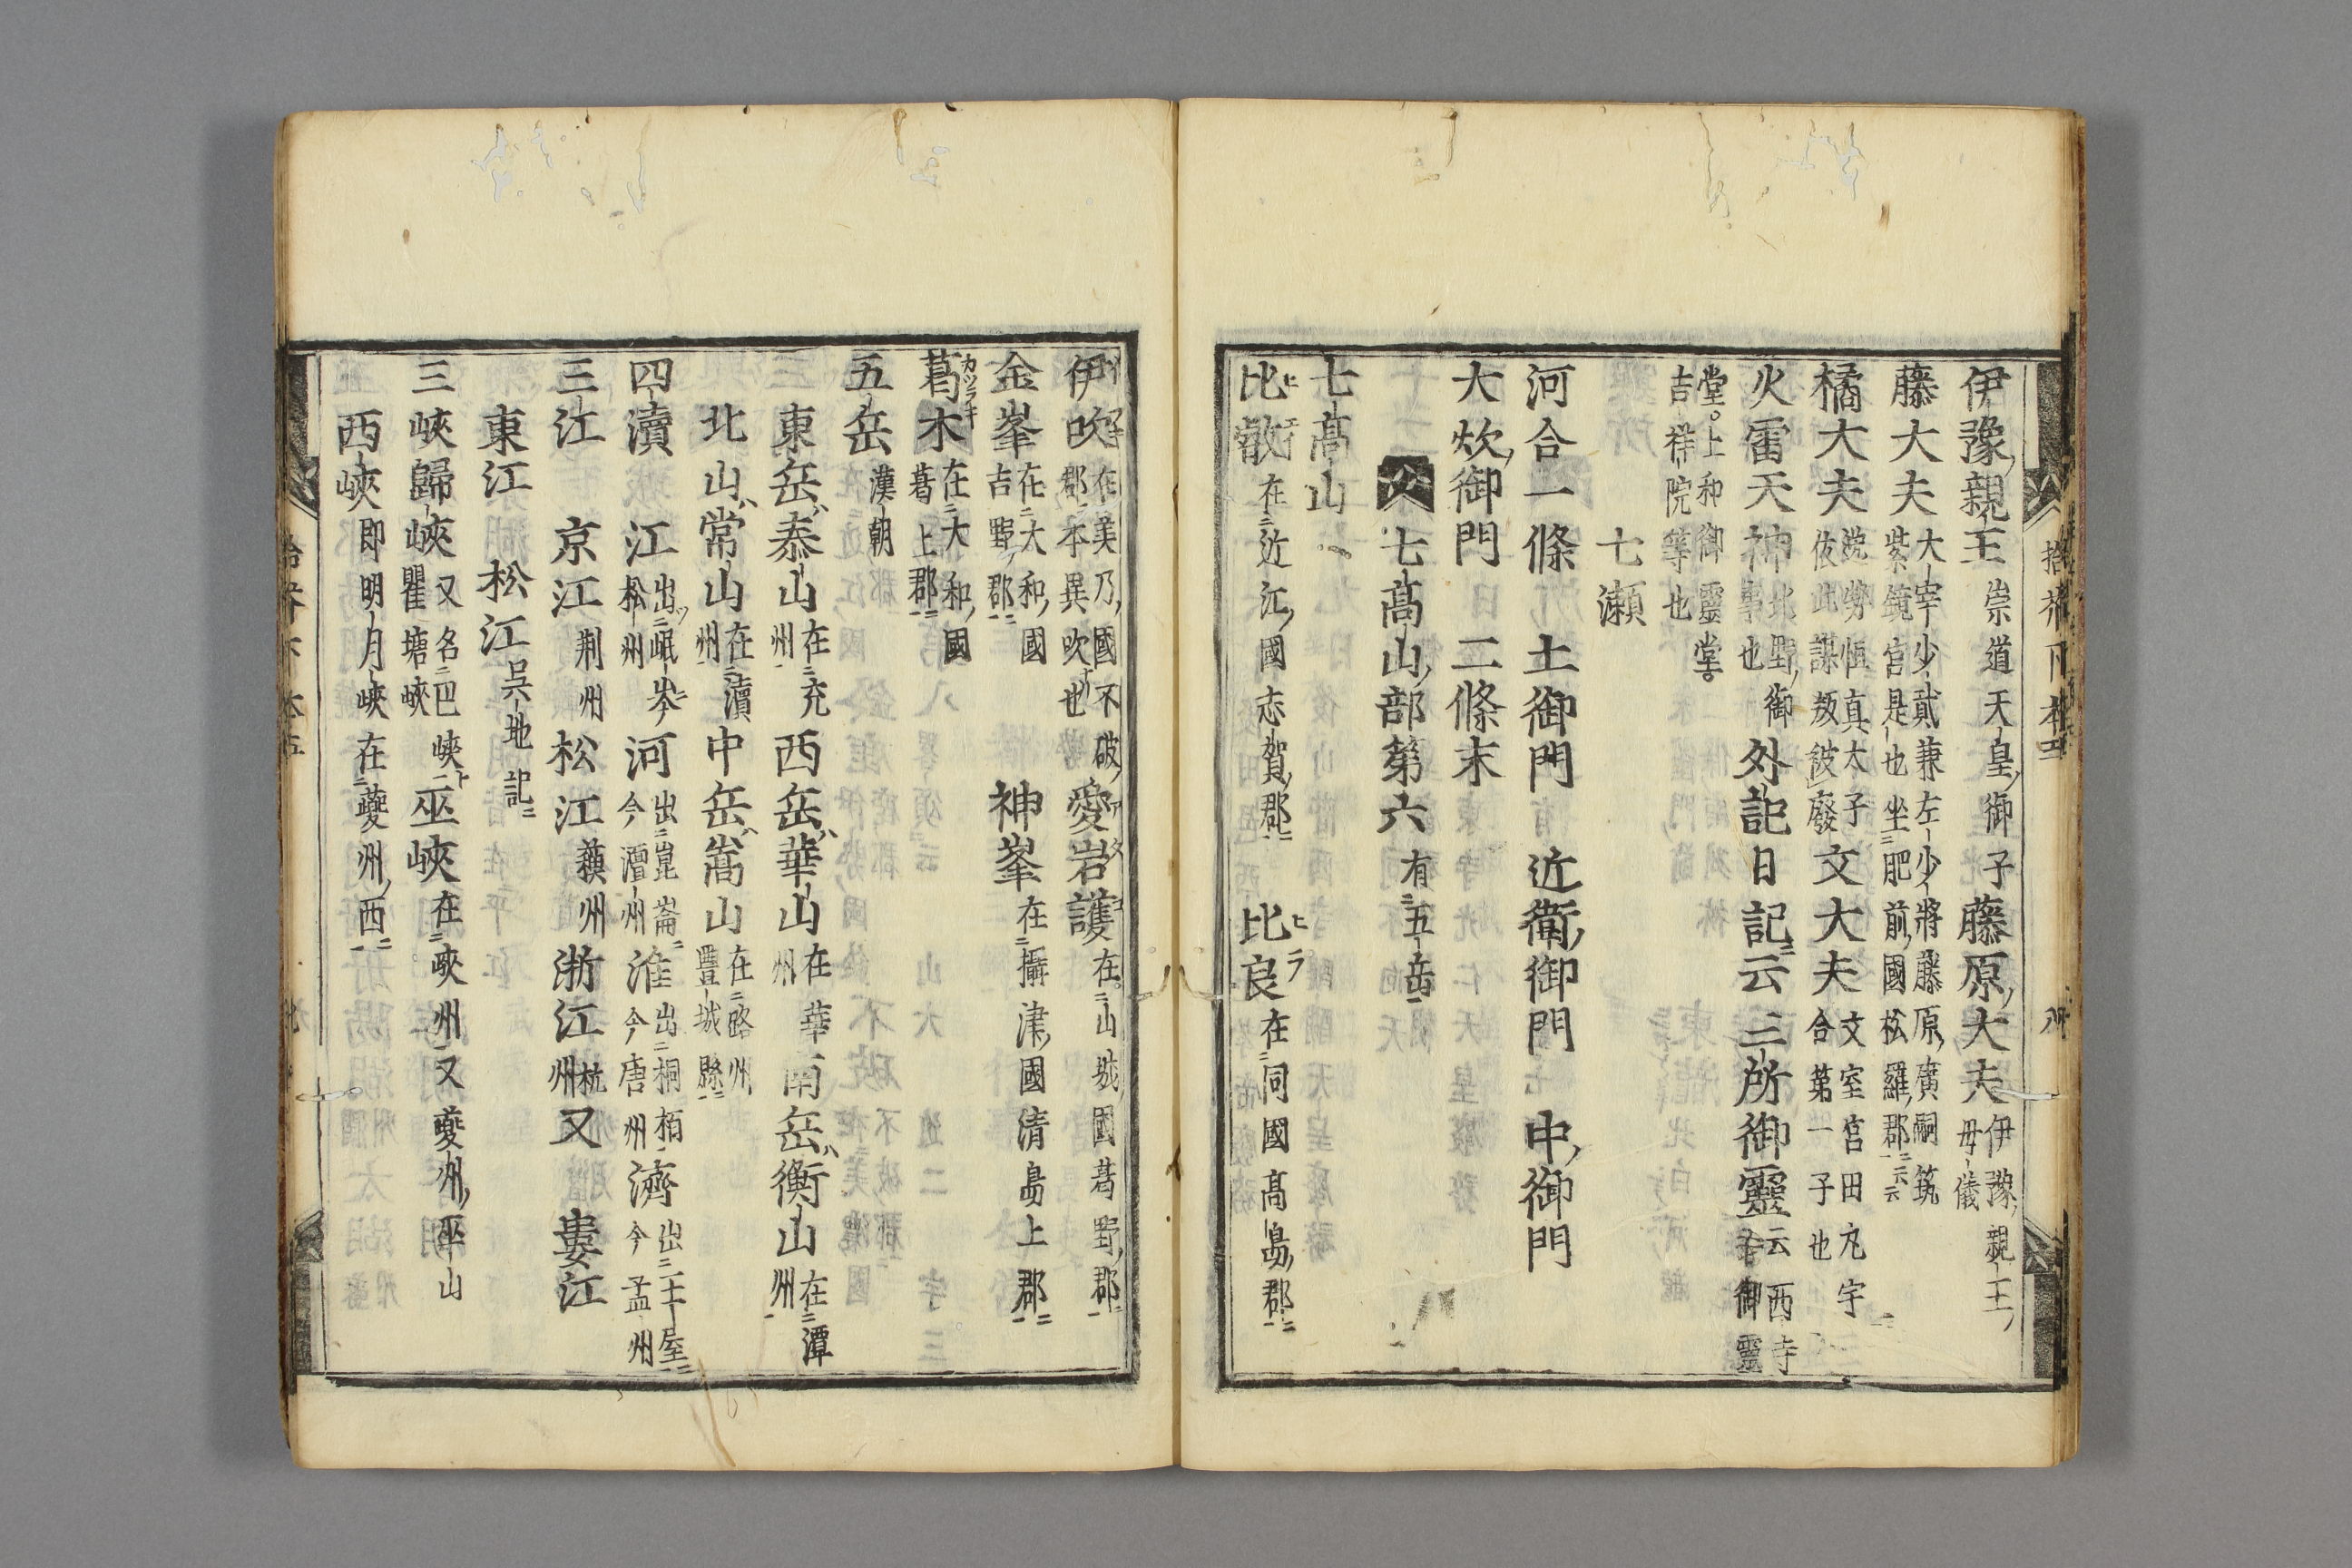 伊豫親王崇道天皇御子藤原大夫伊豫親王母儀
藤大夫大宰少貳兼左少將藤原廣嗣筑紫鏡宮是也坐肥前國松羅郡云云
橘大夫逸勢恒真太子依此謀叛被廢文大夫文室宮田丸宇合第一子也
火雷天神北野御事也外記日記云三所御靈云西寺御靈
堂上和御靈堂吉祥院等也
七瀬
河合一條 土御門 近衛御門 中御門
大炊御門 二條末
七髙山部第六有五岳
七髙山
比叡在近江國志賀郡 比良在同國髙島郡
伊吹在美乃國不破郡本異吹也愛岩護在山城國葛野郡
金峯在大和國吉野郡 神峯在攝津國清島上郡
葛木在大和國葛上郡
五岳漢朝
東岳泰山在兗州西岳華山在華州南岳衡山在潭州
北山常山在瀆州中岳嵩山在路州豐城縣
四瀆 江出岷岑松州河出崑崙今潭州淮出桐栢今唐州濟出土屋今孟州
三江 京江荆州松江蘓州浙江杭州又 婁江
東江 松江呉地記
三峽歸峽又名巴峽瞿塘峽巫峽在峽州又夔州巫山
西峽即明月峽在夔州西